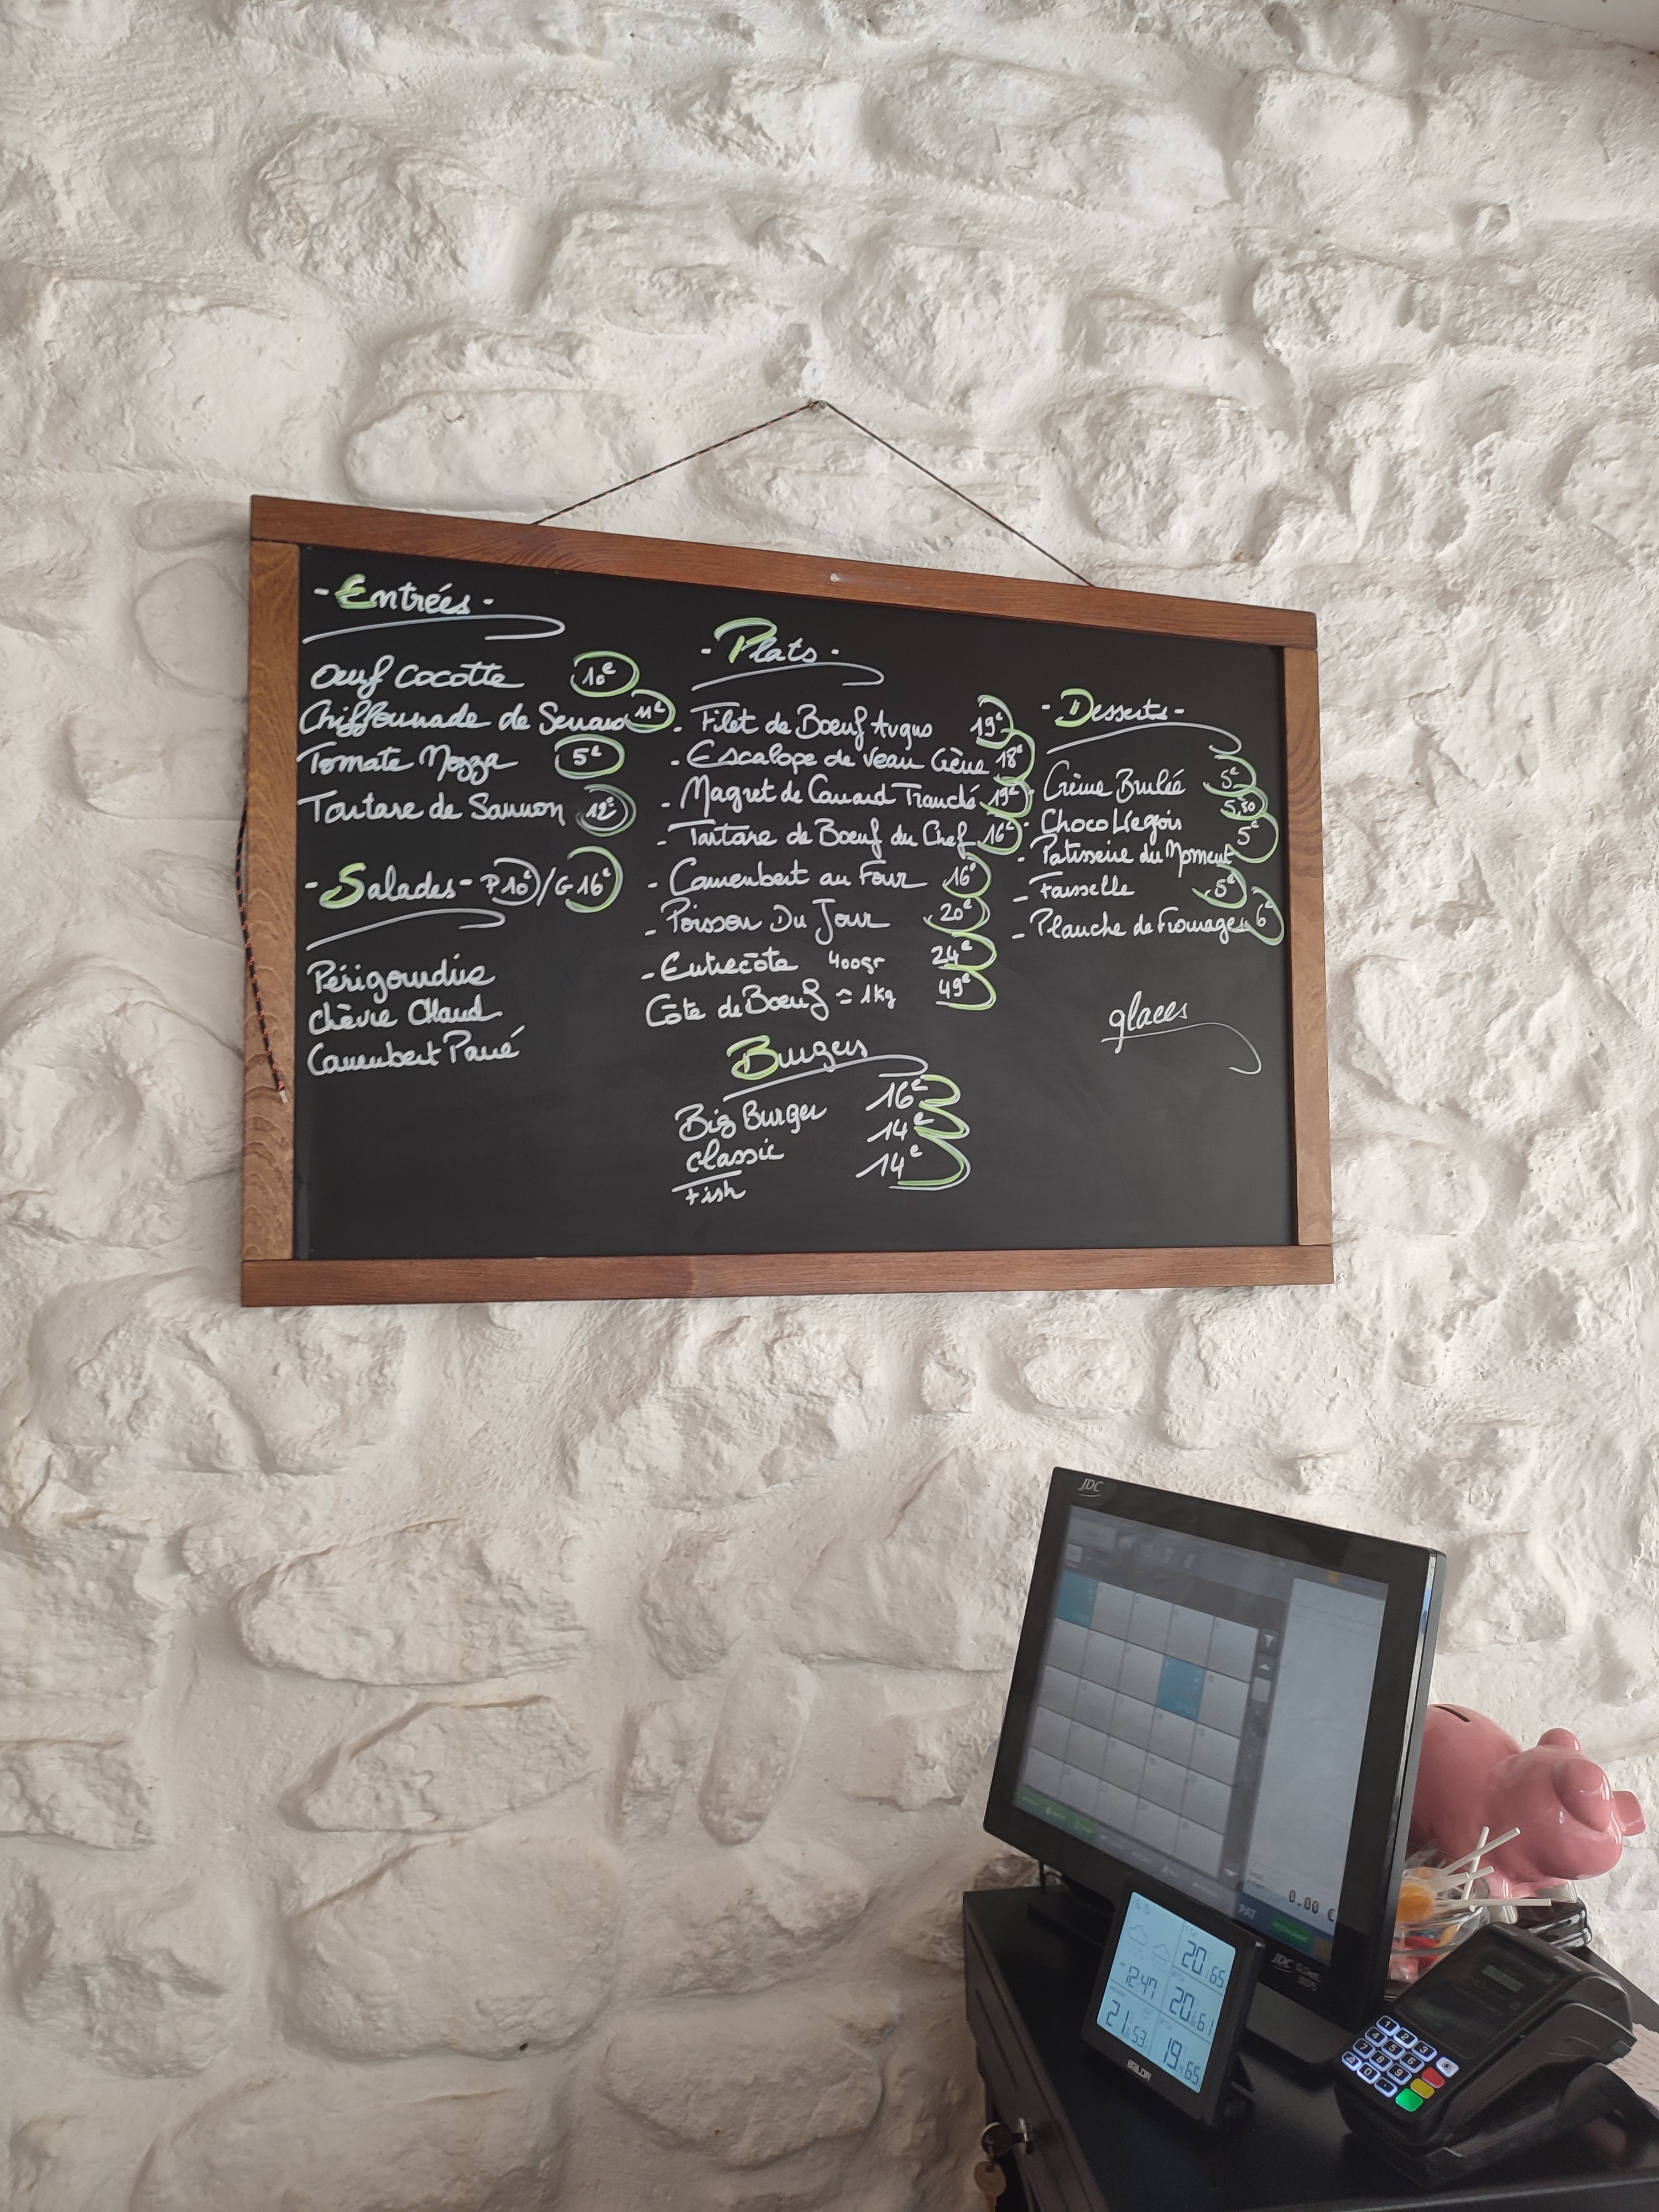 - Entrées -
Oeuf Cocotte 10€
Chiffonnade de Serrano 11€
Tomate Mozza 5€
Tartare de Saumon 12€
- Salades - P 10€ / G 16€
Périgourdine
Chèvre Chaud
Camembert Pané
- Plats -
- Filet de Boeuf Angus 19€
- Escalope de Veau Crème 18€
- Magret de Canard Tranché 19€
- Tartare de Boeuf du Chef 16€
- Camembert au Four 16€
- Poisson Du Jour 20€
- Entrecôte 400gr 24€
Côte de Boeuf ≈ 1kg 49€
Burgers
Big Burger 16€
Classic 14€
Fish 14€
- Desserts -
- Crème Brulée 5€
- Choco Liegois 5,50
- Patisserie du Moment 5€
- Faisselle 5€
- Planche de Fromages 6€
glaces
JDC
0.00 €
PAT
JDC
20 65
12:47 20 61
21 53 19 65
BALDR
1 2 3
4 5 6
7 8 9
0